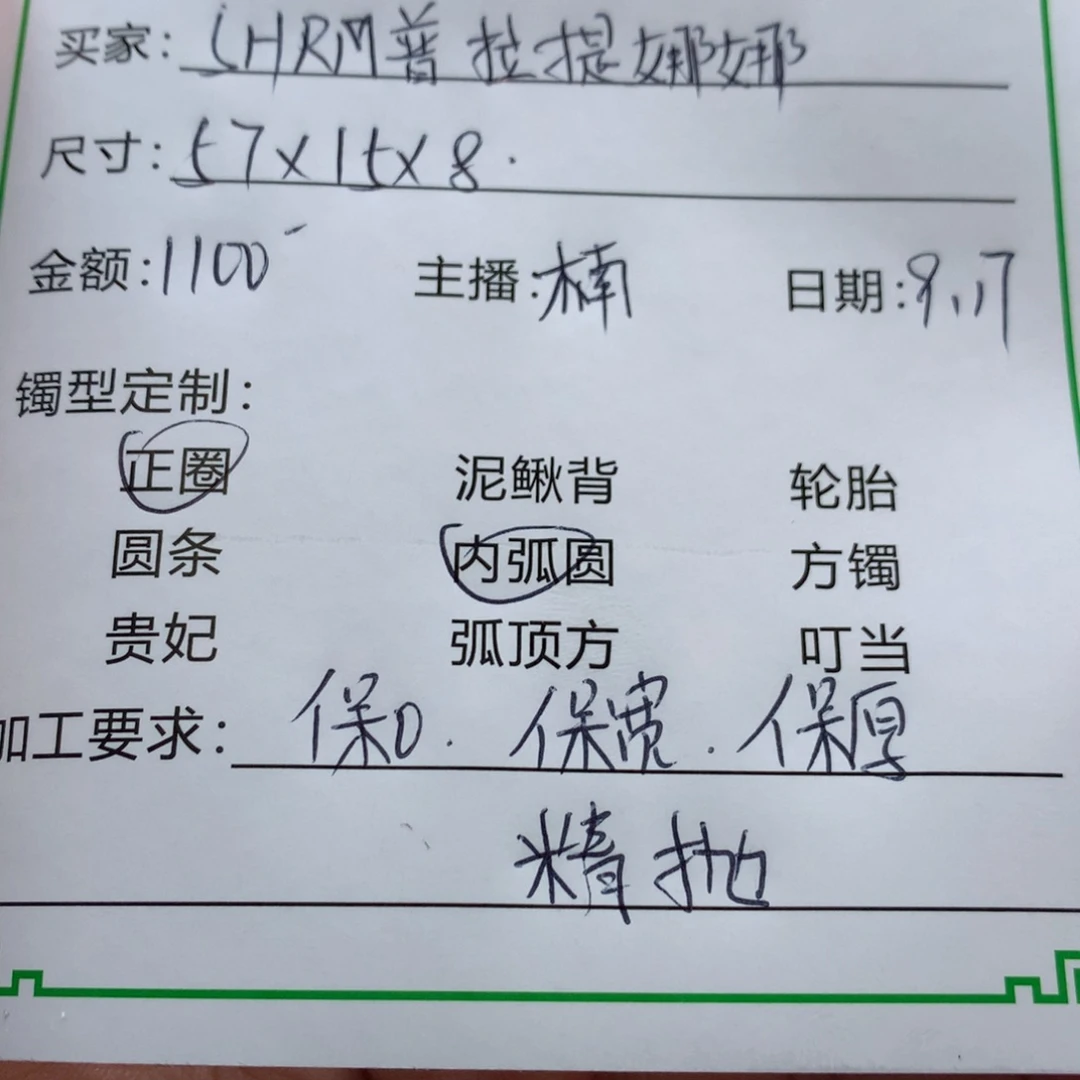 买家: SHRM普拉提娜娜
尺寸: 57x15x8.
金额: 1100 主播: 楠 日期: 9.17
镯型定制:
正圈 泥鳅背 轮胎
圆条 内弧圆 方镯
贵妃 弧顶方 叮当
加工要求: 保D. 保宽. 保厚
精抛